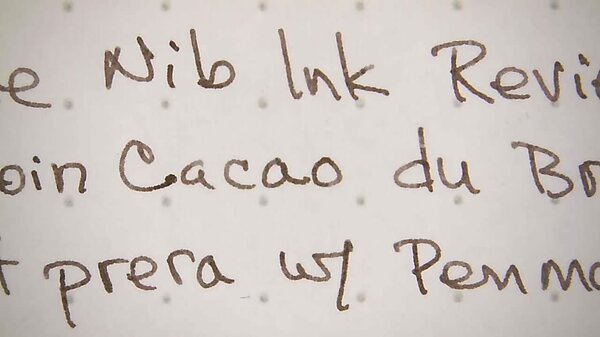 e Nib Ink Revi
oin Cacao du Br
t prera w/ Penma